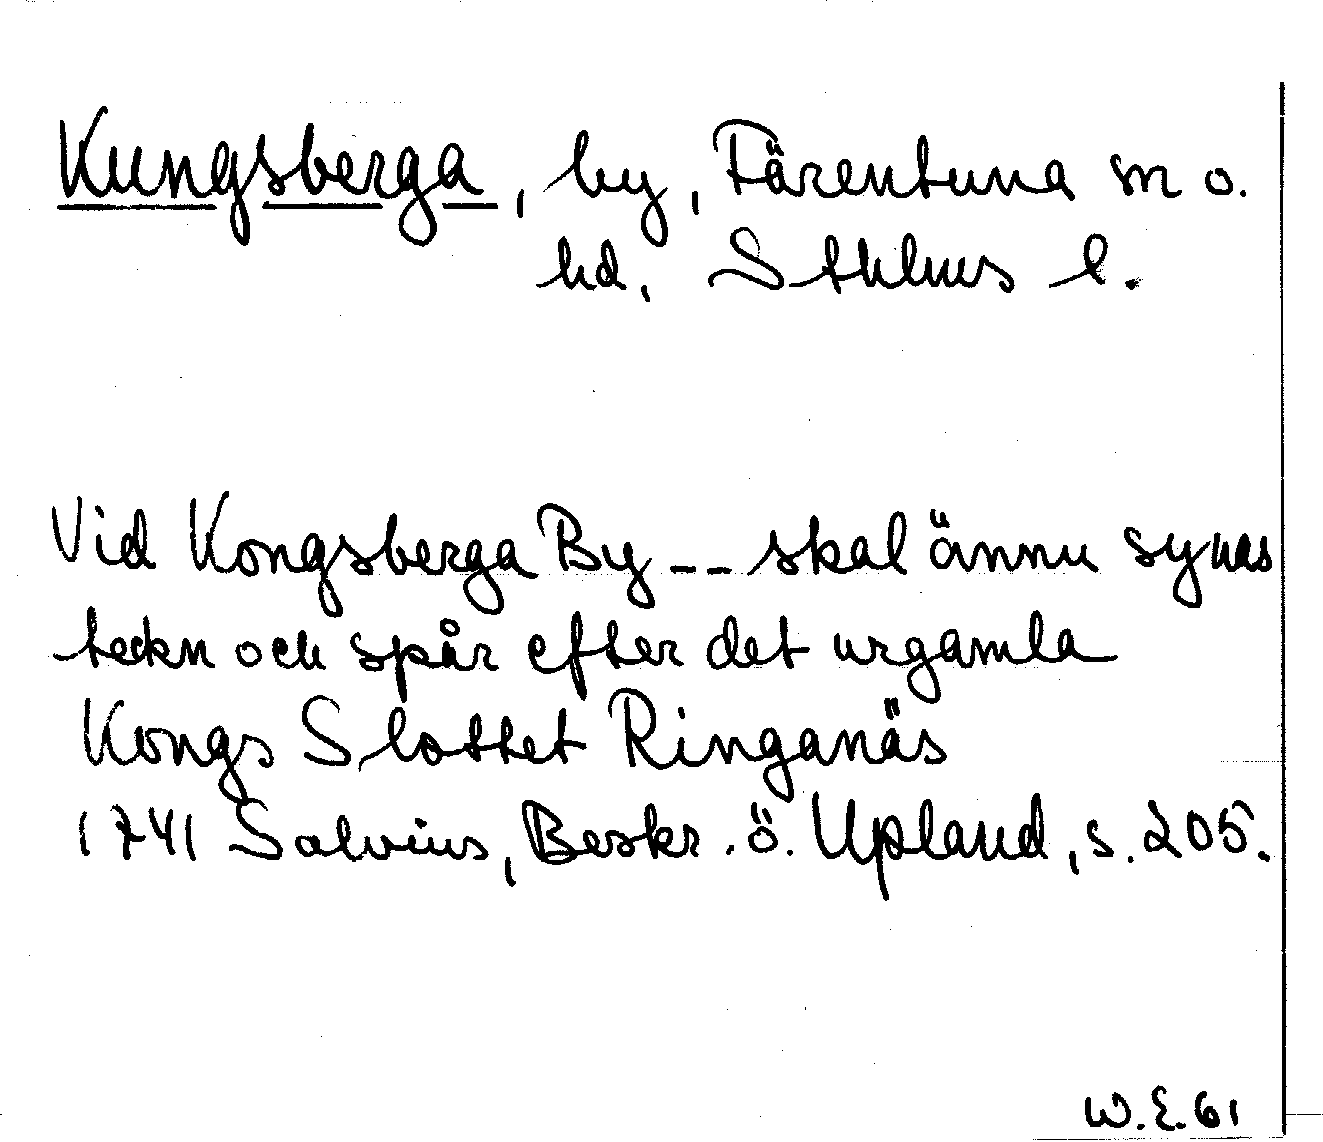 Kungsberga, by, Färentuna sn o.
hd, Sthlms l.
Vid Kongsberga By -- skal ännu synas
teckn och spår efter det urgamla
Kongs Slottet Ringanäs
1741 Salvius, Beskr. ö. Upland, s. 205.
W.E. 61